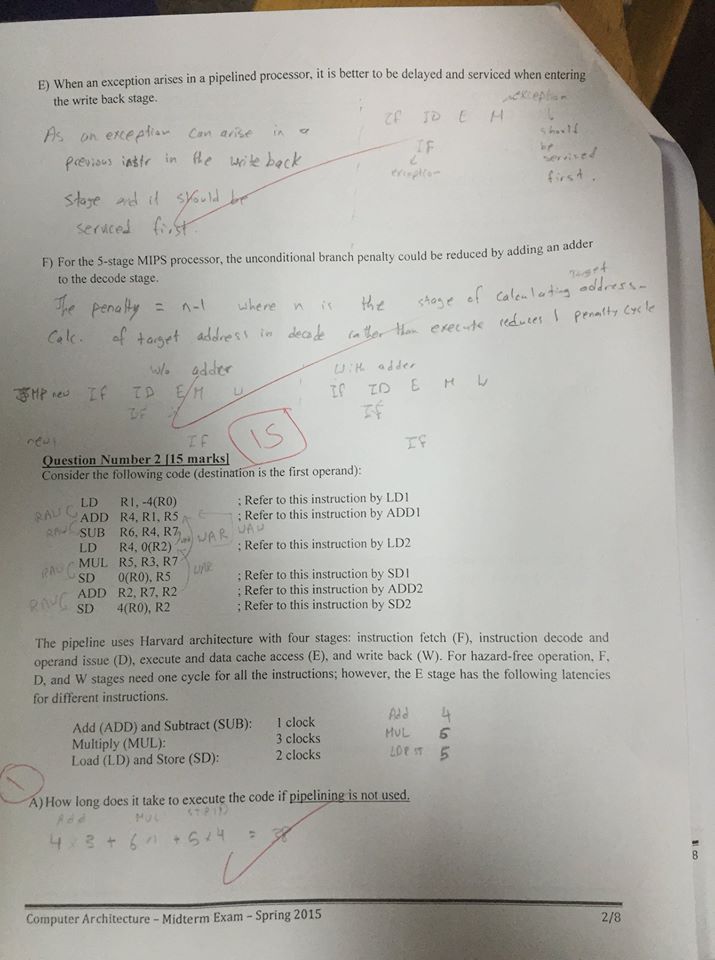 E) When an exception arises in a pipelined processor, it is better to be delayed and serviced when entering
the write back stage.
exception
As an exception can arise in a
IF ID E M
should
previous instr in the write back
IF
be
exception
serviced
stage and it should be
first.
serviced first.
F) For the 5-stage MIPS processor, the unconditional branch penalty could be reduced by adding an adder
to the decode stage.
target
The penalty = n-1 where n is the stage of calculating address.
Calc. of target address in decode rather than execute reduces 1 penalty cycle
w/o adder
With adder
JMP new IF ID E M W
IF ID E M W
IF
IF
new:
IF
15
IF
Question Number 2 [15 marks]
Consider the following code (destination is the first operand):
LD R1, -4(R0) ; Refer to this instruction by LD1
RAW ADD R4, R1, R5 ; Refer to this instruction by ADD1
RAW SUB R6, R4, R7 WAR WAW
LD R4, 0(R2) ; Refer to this instruction by LD2
MUL R5, R3, R7
RAW SD 0(R0), R5 WAR ; Refer to this instruction by SD1
ADD R2, R7, R2 ; Refer to this instruction by ADD2
RAW SD 4(R0), R2 ; Refer to this instruction by SD2
The pipeline uses Harvard architecture with four stages: instruction fetch (F), instruction decode and
operand issue (D), execute and data cache access (E), and write back (W). For hazard-free operation, F,
D, and W stages need one cycle for all the instructions; however, the E stage has the following latencies
for different instructions.
Add (ADD) and Subtract (SUB): 1 clock Add 4
Multiply (MUL): 3 clocks MUL 6
Load (LD) and Store (SD): 2 clocks 5
1
A) How long does it take to execute the code if pipelining is not used.
Add MUL
4 x 3 + 6 x 1 + 5 x 4 = 38
8
Computer Architecture – Midterm Exam – Spring 2015 2/8